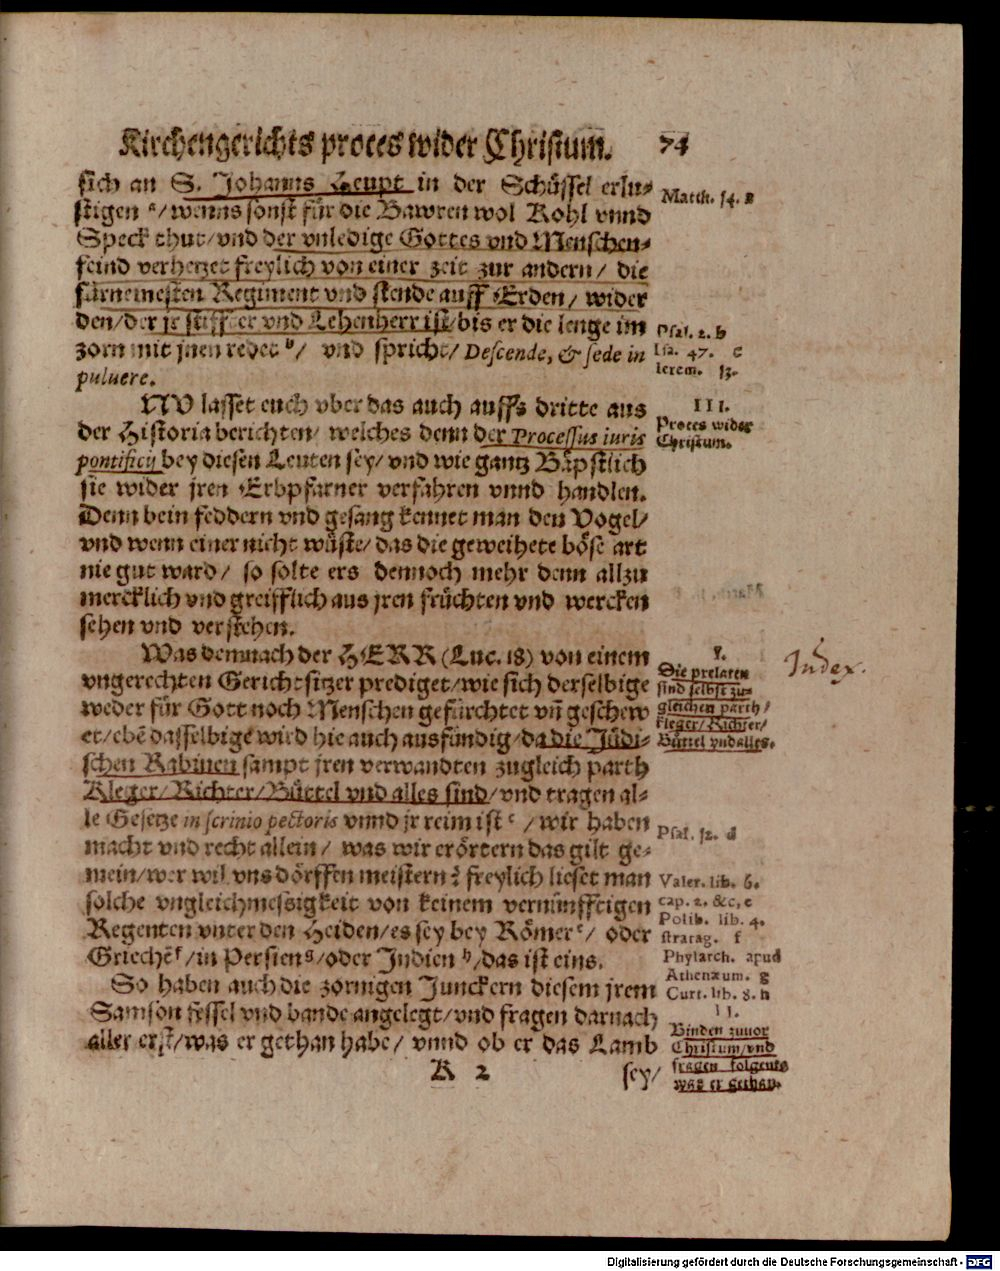 Kirchengerichts proces wider Christum. 74
sich an S. Johanns Heupt in der Schüssel erlu-
stigen ᵃ/wenns sonst für die Bawren wol Kohl vnnd
Speck thut/vnd der vnledige Gottes vnd Menschen-
feind verhetzet freylich von einer zeit zur andern/ die
fürnemesten Regiment vnd stende auff Erden/ wider
den/der jr stiffter vnd Lehenherr ist/bis er die lenge im
zorn mit jnen redet ᵇ/ vnd spricht/ Descende, & sede in
puluere.
NV lasset euch vber das auch auffs dritte aus
der Historia berichten/ welches denn der Processus iuris
pontificij bey diesen Leuten sey/ vnd wie gantz Bäpstlich
sie wider jren Erbpfarner verfahren vnnd handlen.
Denn bein feddern vnd gesang kennet man den Vogel/
vnd wenn einer nicht wüste/ das die geweihete böse art
nie gut ward/ so solte ers dennoch mehr denn allzu
mercklich vnd greifflich aus jren früchten vnd wercken
sehen vnd verstehen.
Was demnach der HERR (Luc. 18) von einem
vngerechten Gerichtsitzer prediget/wie sich derselbige
weder für Gott noch Menschen gefürchtet vn̄ geschew
et/ebē dasselbige wird hie auch ausfündig/da die Jüdi-
schen Rabinen sampt jren verwandten zugleich parth
Kleger/Richter/Büttel vnd alles sind/vnd tragen al-
le Gesetze in scrinio pectoris vnnd jr reim ist ᶜ /wir haben
macht vnd recht allein/ was wir erörtern das gilt ge-
mein/wer wil vns dörffen meistern? freylich lieset man
solche vngleichmessigkeit von keinem vernünfftigen
Regenten vnter den Heiden/es sey bey Römer ᵉ/ oder
Griechē ᶠ/in Persien ᵍ/oder Indien ʰ/das ist eins.
So haben auch die zornigen Junckern diesem jrem
Samson fessel vnd bande angelegt/vnd fragen darnach
aller erst/was er gethan habe/ vnnd ob er das Lamb
K 2 sey/
Matth. 14. a
Psal. 2. b
Isa. 47. c
Ierem. 13.
III.
Proces wider
Christum.
I.
Die prelaten
sind selbst zu-
gleichen parth/
kleger/Richter/
Büttel vnd alles.
Index.
Psal. 12. d
Valer. lib. 6.
cap. 2. &c, e
Polib. lib. 4.
strarag. f
Phylarch. apud
Athenæum. g
Curt. lib. 8. h
II.
Binden zuuor
Christum/vnd
fragen folgents
was er gethan.
Digitalisierung gefördert durch die Deutsche Forschungsgemeinschaft - DFG